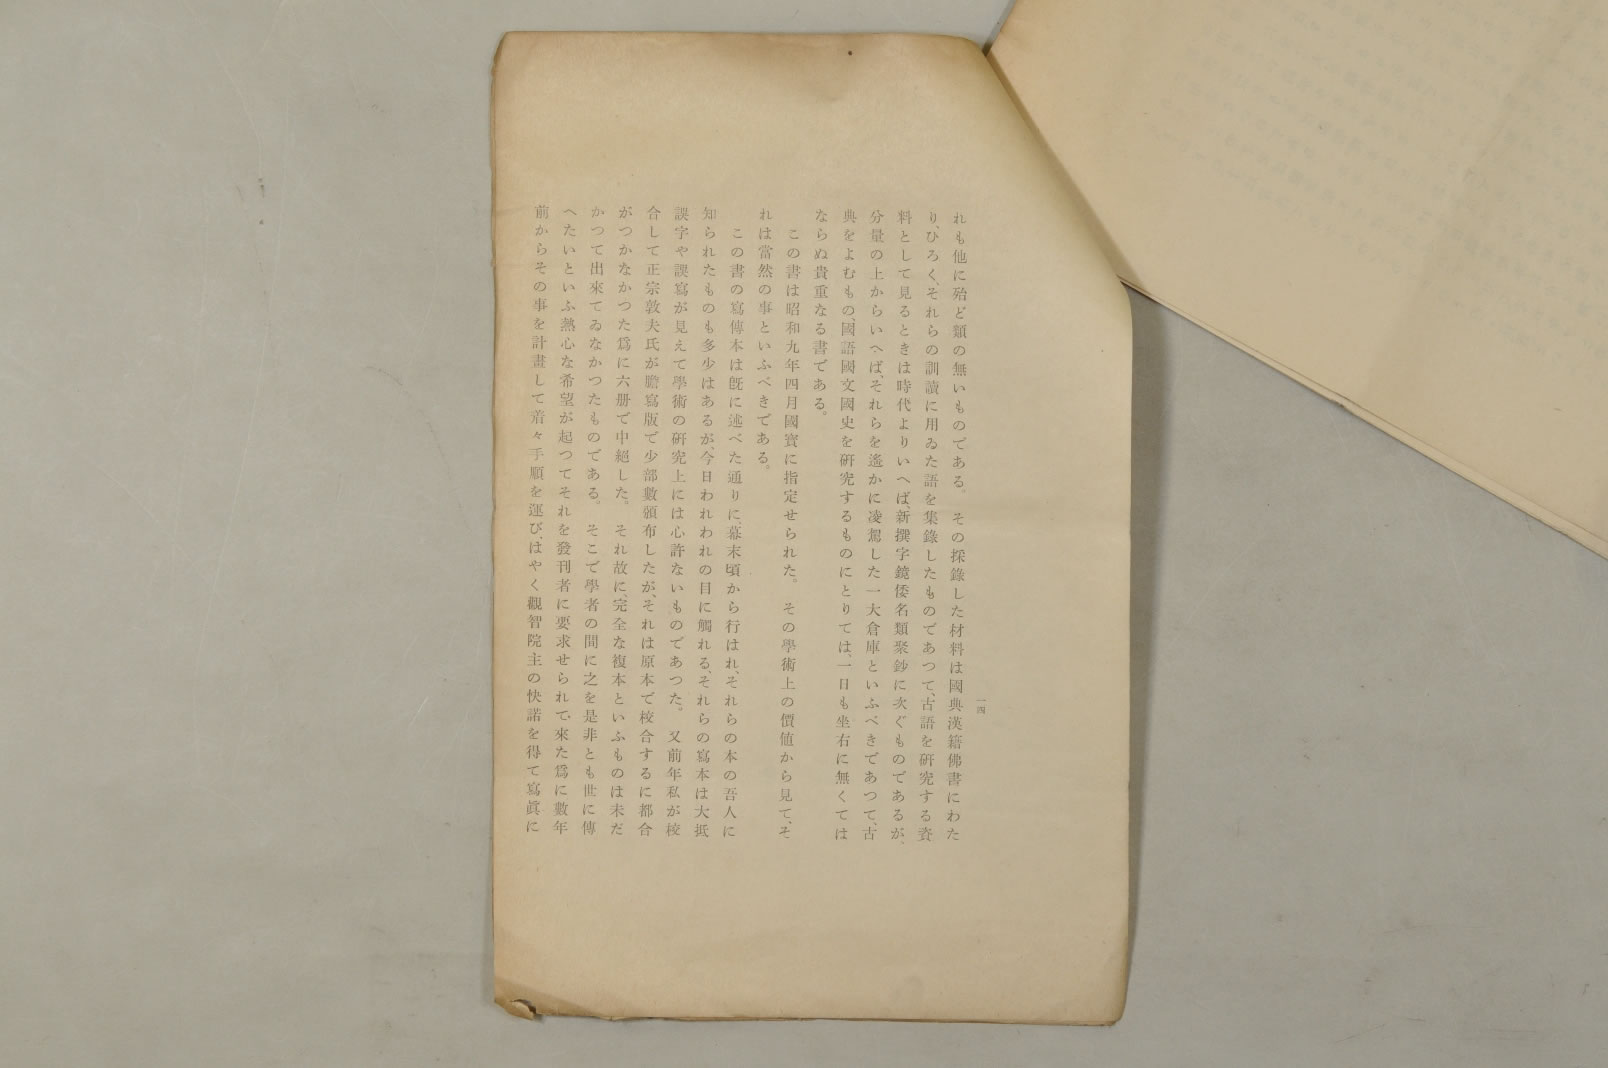 れも他に殆ど類の無いものである。その採錄した材料は國典漢籍佛書にわた
り、ひろく、それらの訓讀に用ゐた語を集錄したものであつて、古語を硏究する資
料として見るときは時代よりいへば、新撰字鏡倭名類聚鈔に次ぐものであるが、
分量の上からいへば、それらを遙かに凌駕した一大倉庫といふべきであつて、古
典をよむもの、國語國文國史を硏究するものにとりては、一日も坐右に無くては
ならぬ貴重なる書である。
この書は昭和九年四月國寳に指定せられた。その學術上の價値から見て、そ
れは當然の事といふべきである。
この書の寫傳本は旣に述べた通りに、幕末頃から行はれ、それらの本の吾人に
知られたものも多少はあるが、今日われわれの目に觸れる、それらの寫本は大抵
誤字や誤寫が見えて學術の硏究上には心許ないものであつた。又前年私が校
合して正宗敦夫氏が謄寫版で少部數頒布したが、それは原本で校合するに都合
がつかなかつた爲に六册で中絕した。それ故に、完全な複本といふものは未だ
かつて出來てゐなかつたものである。そこで學者の間に之を是非とも世に傳
へたいといふ熱心な希望が起つてそれを發刊者に要求せられて、來た爲に數年
前からその事を計畫して着々手順を運び、はやく觀智院主の快諾を得て寫眞に
一四